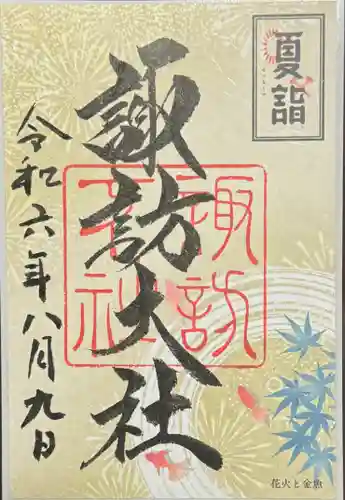 夏詣
諏訪大社
諏訪大社
令和六年八月九日
花火と金魚